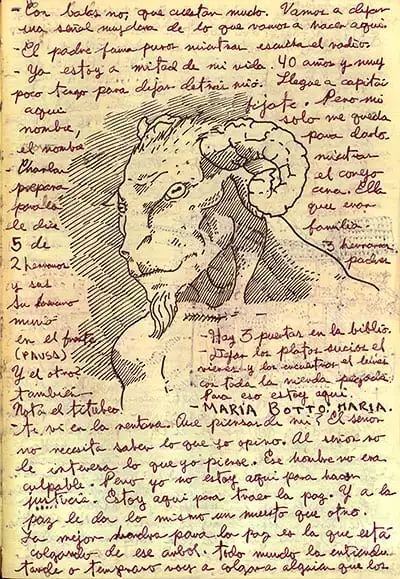 - Con balas no, que cuestan mucho. Vamos a dejar
una señal muy clara de lo que vamos a hacer aquí.
- El padre fuma puros mientras escucha el radio.
- Ya estoy a mitad de mi vida 40 años y muy
poco tengo para dejar detrás mío. Llegué a capitán
aquí fíjate. Pero mi
nombre, solo me queda
el nombre para darlo
- Charlan mientras
prepara el conejo
para la cena. Ella
le dice que eran
5 de familia
2 hermanos 3 hermanas
y sus padres
Su hermano
murió
en el frente - Hay 3 puertas en la biblio.
(PAUSA) - Dejar los platos sucios el
Y el otro? viernes y los encuentras el lunes
también con toda la mierda pegada.
Nota el titubeo. Para eso estoy aquí.
- MARÍA BOTTO: MARIA.
- te vi en la ventana. Qué piensas de mí? El señor
no necesita saber lo que yo opino. Al señor no
le interesa lo que yo piense. Ese hombre no era
culpable. Pero yo no estoy aquí para hacer
justicia. Estoy aquí para traer la paz. Y a la
paz le da lo mismo un muerto que otro.
La mejor para la paz es la que está
colgando de ese árbol. todo mundo la entiende
tarde o temprano voy a colgar a alguien que los